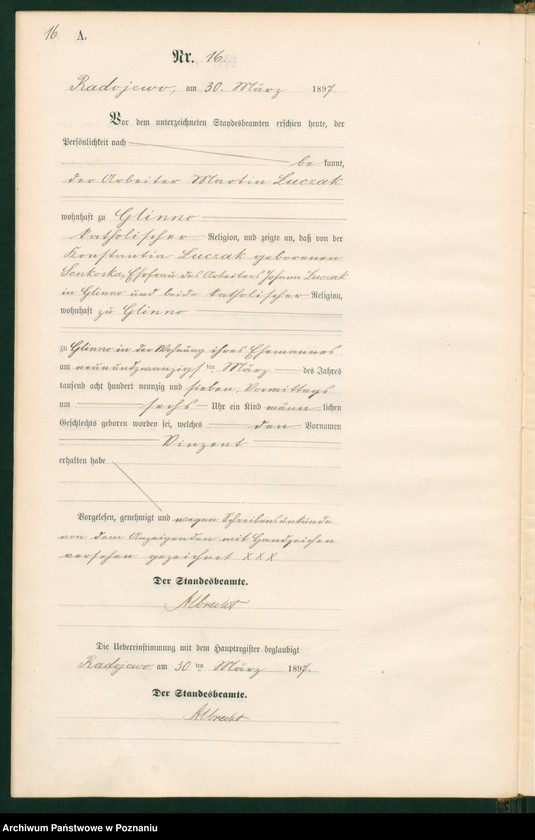 16 A.
Nr. 16.
Radojewo, am 30. März 1897.
Vor dem unterzeichneten Standesbeamten erschien heute, der
Persönlichkeit nach
be kannt,
der Arbeiter Martin Luczak
wohnhaft zu Glinno
katholischer Religion, und zeigte an, daß von der
Konstantia Luczak geborenen
Ehefrau des Arbeiters Johann Luczak
in Glinno und beide katholischer Religion,
wohnhaft zu Glinno
zu Glinno in der Wohnung ihres Ehemannes
am neunundzwanzigsten März des Jahres
tausend acht hundert neunzig und sieben, Vormittags
um sechs Uhr ein Kind männ lichen
Geschlechts geboren worden sei, welches den Vornamen
Vinzent
erhalten habe
Vorgelesen, genehmigt und wegen Schreibensunkunde
von dem Anzeigenden mit Handzeichen
versehen gezeichnet XXX
Der Standesbeamte.
Albrecht
Die Uebereinstimmung mit dem Hauptregister beglaubigt
Radojewo am 30 ten März 1897.
Der Standesbeamte.
Albrecht
Archiwum Państwowe w Poznaniu